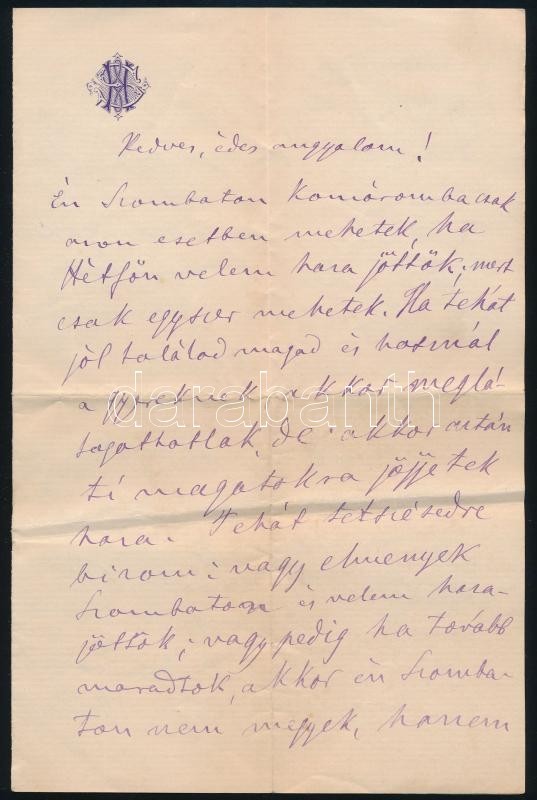 Kedves, édes angyalom!
Én Szombaton Komáromba csak
azon esetben mehetek, ha
Hétfőn velem haza jöttök; mert
csak egyszer mehetek. Ha tehát
jól találod magad és használ
a gyereknek, akkor meglá-
togathatlak, de akkor aztán
ti magatokra jöjjetek
haza. Tehát tetszésedre
bizom: vagy elmenjek
Szombaton és velem haza-
jöttök; vagy pedig ha tovább
maradtok, akkor én Szomba-
ton nem megyek, hanem
darabanth